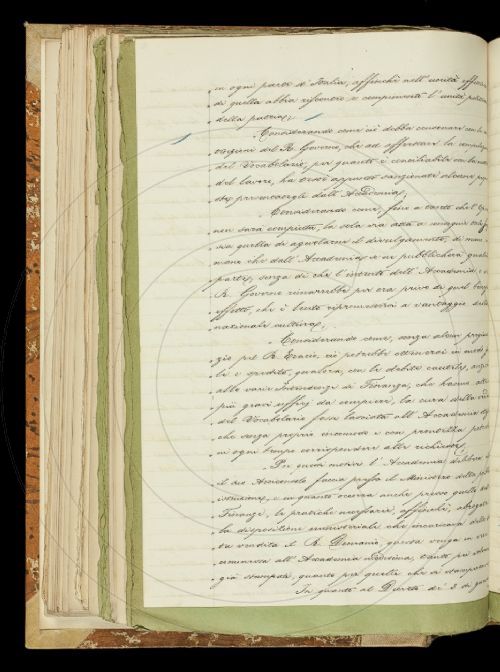 in ogni parte d'Italia, affinchè nell'unità
di quella abbia riscontro e compimento l'unità
della patria;
Considerando come ciò debba concordare con le
del R. Governo, che ad affrettare la
del Vocabolario, per quanto è conciliabile con la
del lavoro, ha testè appunto sanzionate alcune
ste provocategli dall'Accademia;
Considerando come, fino a tanto che l'
non sarà compiuta, la sola via atta a
sia quella di agevolarne il divulgamento, di mano
mano che dall'Accademia se ne pubblicherà qualche
parte, senza di che l'intento dell'Accademia e
R. Governo rimarrebbe per ora privo di quel
effetto, che è lecito ripromettersi a vantaggio della
nazionale cultura;
Considerando come, senza alcun pregiu-
zio pel R. Erario, ciò potrebbe ottenersi in modo
le e spedito, qualora, con le debite cautele, anzichè
alle varie Intendenze di Finanza, che hanno altri
più gravi uffizj da compiere, la cura della vendita
del Vocabolario fosse lasciata all'Accademia
che senza proprio incomodo e con prontezza
in ogni tempo corrispondere alle richieste,
Per questi motivi l'Accademia delibera
il suo Arciconsolo faccia presso il Ministero della
istruzione, e in quanto occorra anche presso quello delle
Finanze, le pratiche necessarie, affinchè, abrogata
la disposizione ministeriale che incaricava della
ta vendita il R. Demanio, questa venga in
commessa all'Accademia medesima, tanto per
già stampati, quanto per quelli che si stamperanno
In quanto al Decreto de' 2 di